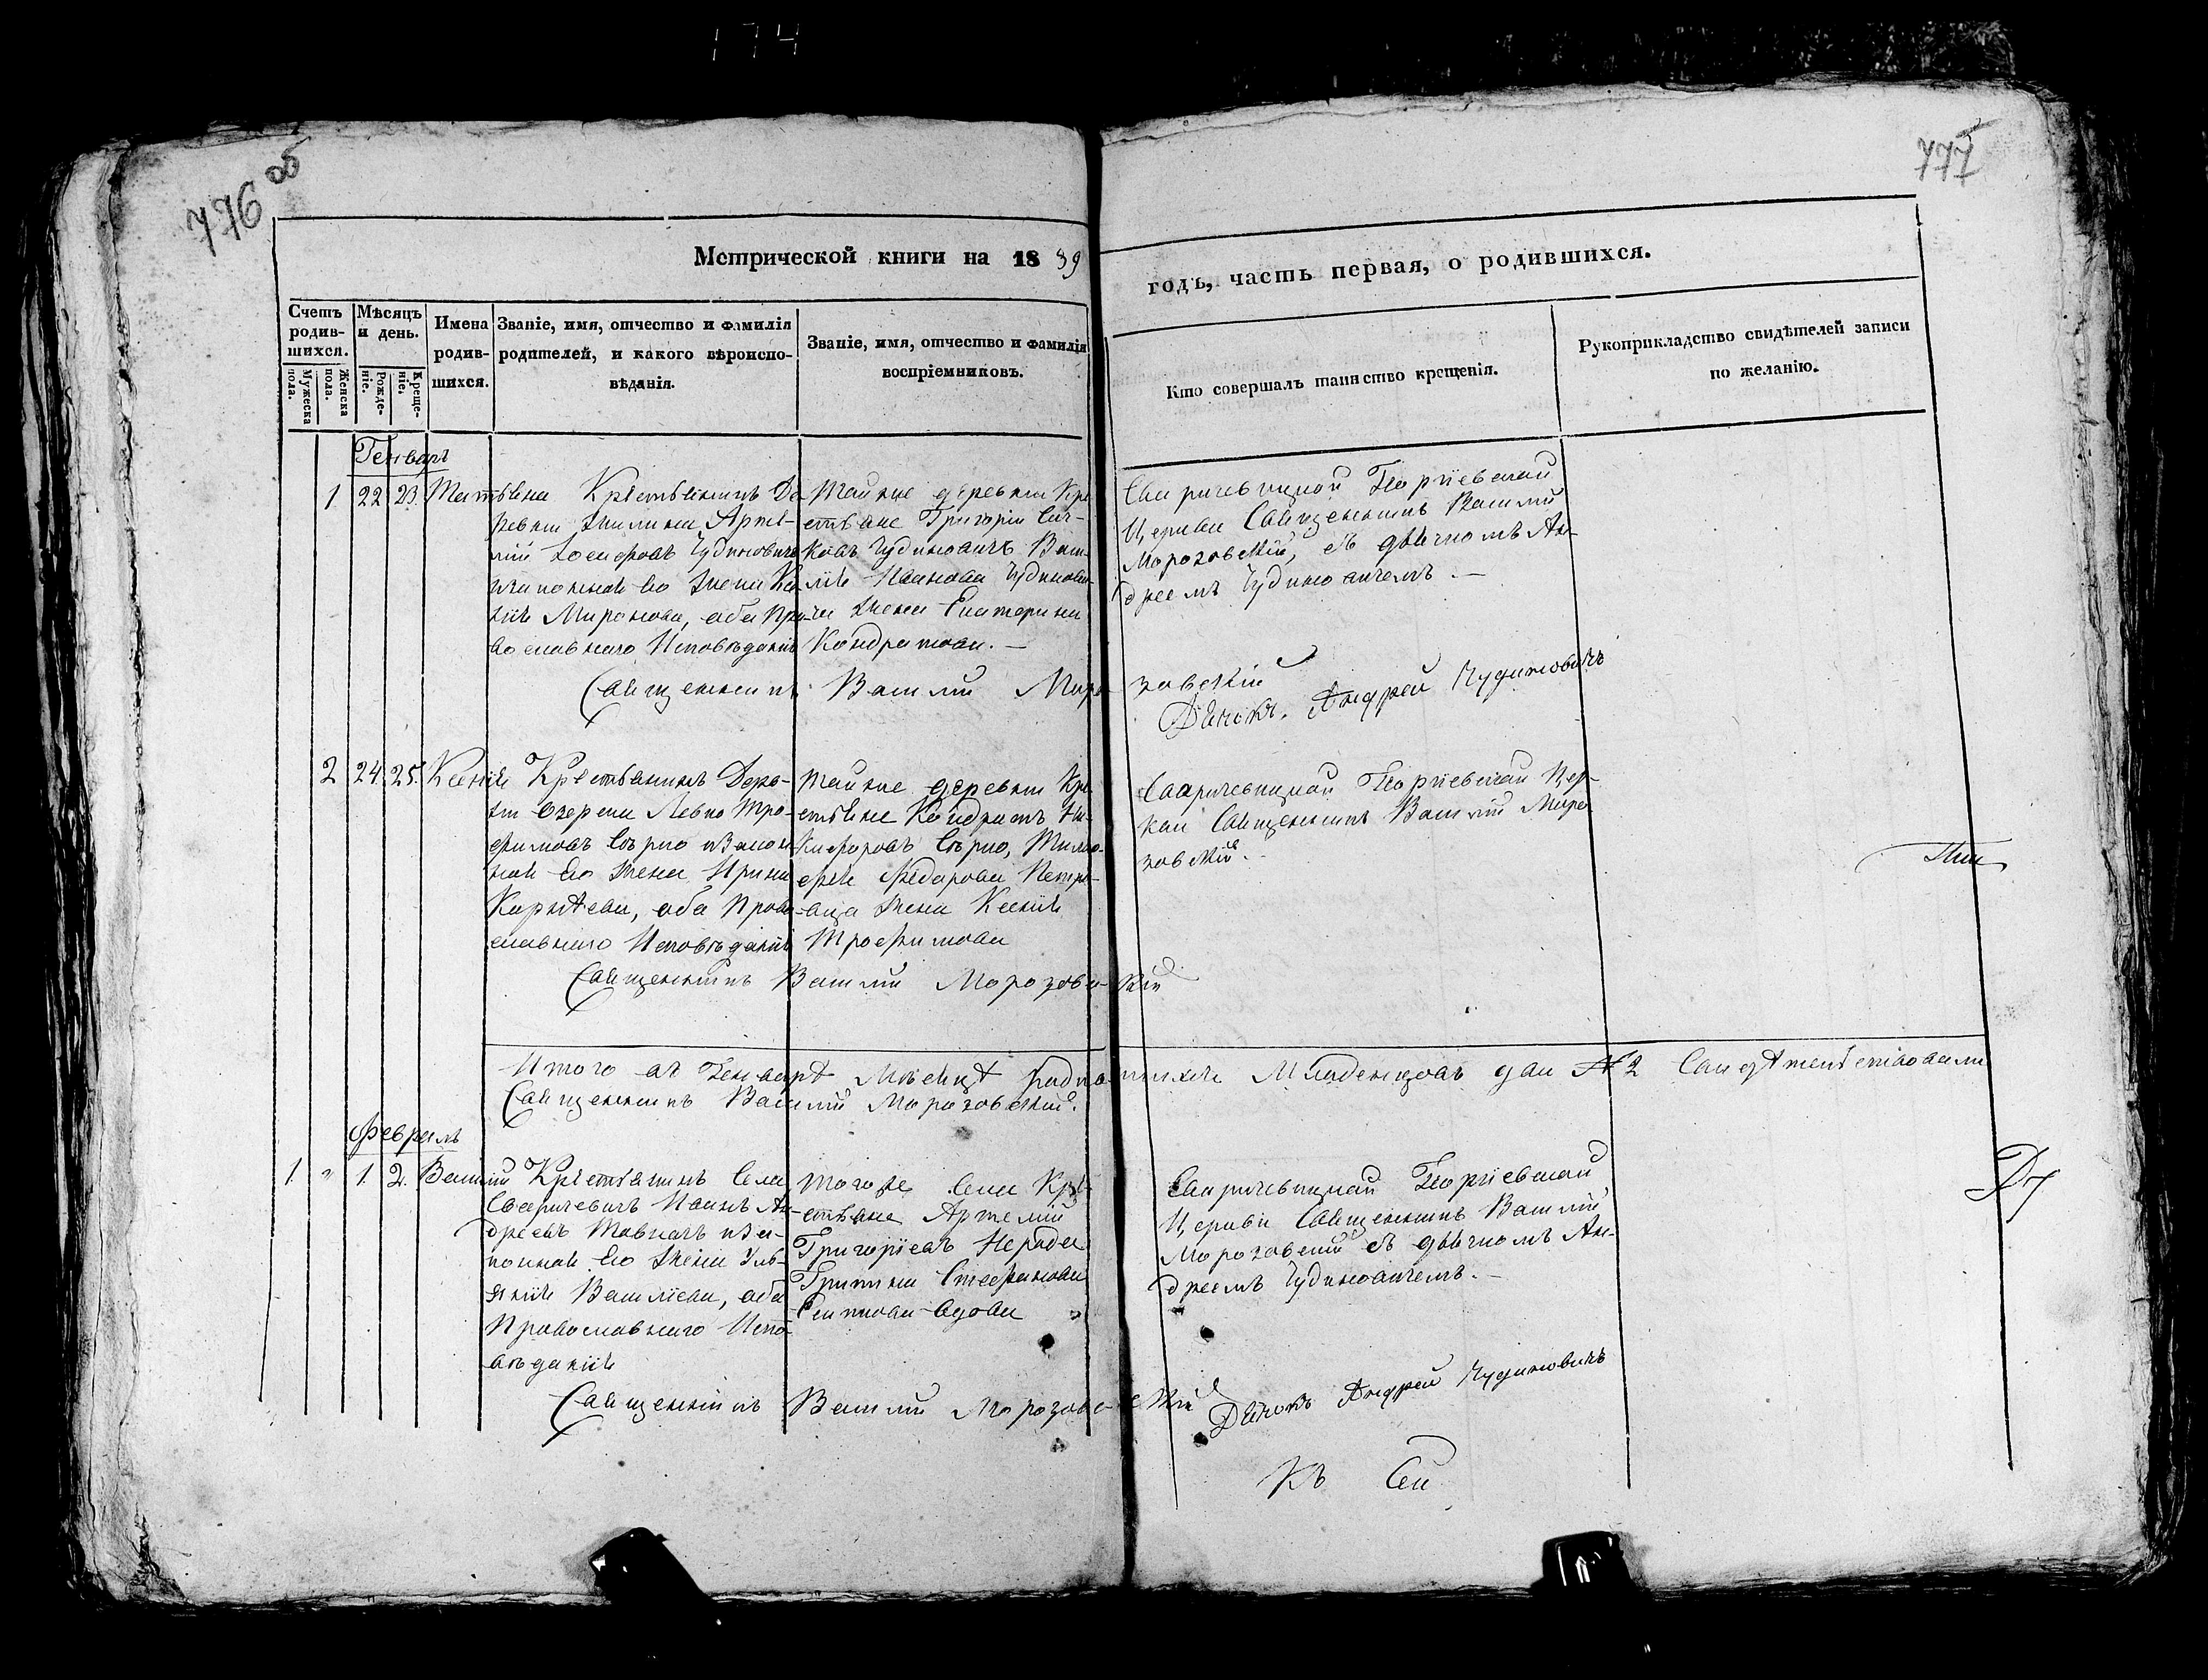 174
776 об
777
Метрической книги на 1839
годъ, часть первая, о родившихся.
Счетъ родив-шихся.
Мужеска пола.
Женска пола.
Мѣсяцъ и день.
Рожде-ніе.
Креще-ніе.
Имена родив-шихся.
Званіе, имя, отчество и фамилія
родителей, и какого вѣроиспо-
вѣданія.
Званіе, имя, отчество и фамилія
воспріемниковъ.
Кто совершалъ таинство крещенія.
Рукоприкладство свидѣтелей записи
по желанію.
Генварь
1 22 23. Татьяна
Крестьянинъ Де-
ревни Артем-
мій Іосифовъ Чудиновичъ
и законная его жена
Миронова, оба Пра-
вославнаго Исповѣданія
Тойже деревни Кре-
стьяне Григорій
Чудиновичъ
Иванова Чудинови-
ча жена Екатерина
Кондратова. —
Сваричевицкой Георгіевской
Церкви Священникъ Василій
Морозовскій, съ дьячкомъ Ан-
дреемъ Чудиновичемъ. —
Священникъ Василій Морозовскій
Дьячокъ Андрей Чудиновичъ
2 24. 25. Ксенія
Крестьянинъ Дере-
вни Озерска Левко Тро-
фимовъ и закон-
ная его жена Ирина
оба Право-
славнаго Исповѣданія
Тойже деревни Кре-
стьяне Кондратъ Ни-
кифоровъ
Федорова Петро-
вца жена Ксенія
Трофимова
Сваричевицкой Георгіевской Цер-
кви Священникъ Василій Моро-
зовскій. —
Священникъ Василій Морозовскій
Итого въ Генварѣ Мѣсяцѣ родившихся Младенцовъ два № 2 Свидѣтельствовали
Священникъ Василій Морозовскій.
Февраль
1. " 1. 2. Василій
Крестьянинъ Села
Сваричевичъ Иванъ Ан-
дреевъ и за-
конная его жена Уль-
янія Василіева, оба
Православнаго Испо-
вѣданія
Тогоже Села Кре-
стьяне Артемій
Григоріевъ
Стефанова
вдова
Сваричевицкой Георгіевской
Церкви Священникъ Василій
Морозовскій съ дьячкомъ Ан-
дреемъ Чудиновичемъ. —
Священникъ Василій Морозовскій
Дьячокъ Андрей Чудиновичъ
Къ Сей